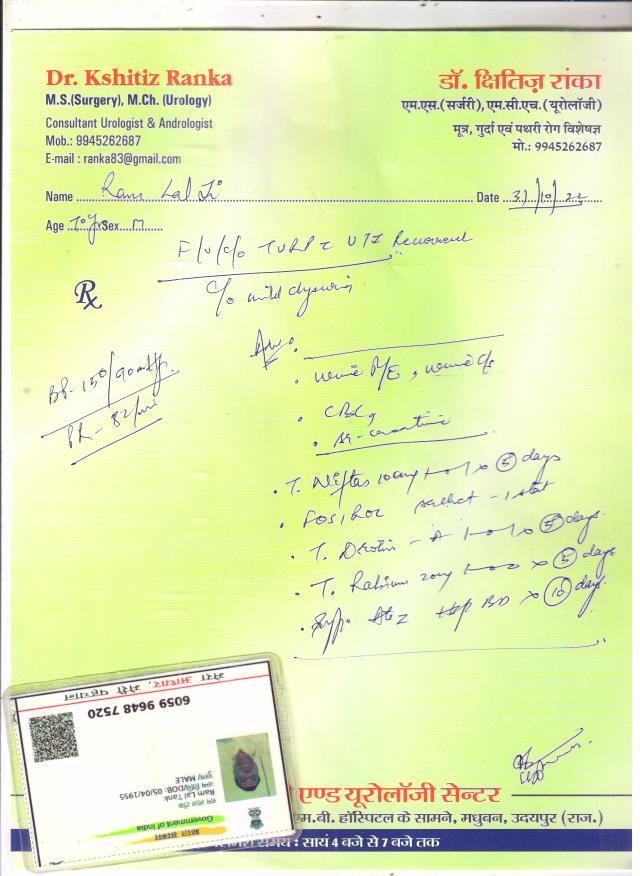 Dr. Kshitiz Ranka
M.S.(Surgery), M.Ch. (Urology)
Consultant Urologist & Andrologist
Mob.: 9945262687
E-mail : ranka83@gmail.com
डॉ. क्षितिज़ रांका
एम.एस.(सर्जरी), एम.सी.एच.(यूरोलॉजी)
मूत्र, गुर्दा एवं पथरी रोग विशेषज्ञ
मो.: 9945262687
Name Ram Lal Ji Date 31/10/22
Age 70 yrs Sex M
F/U/C/O TURP c UTI
Rx
C/O mild dysuria
BP-150/90 mmHg
PR-82/min
Adv
urine R/E, urine C/S
CBC,
Sr-creatinine
T. Niftas 100mg 1-0-1 x 5 days
Fosiroc sachet - 1 stat
T. Drotin - A 1-0-1 x 5 days
T. 20mg 1-0-0 x 5 days
Syp. BD x 10 days
मेरा आधार, मेरी पहचान
6059 9648 7520
राम लाल टांक
Ram Lal Tank
जन्म तिथि/DOB: 05/04/1955
पुरुष/ MALE
भारत सरकार
Government of India
एण्ड यूरोलॉजी सेन्टर
एम.बी. हॉस्पिटल के सामने, मधुबन, उदयपुर (राज.)
समय : सायं 4 बजे से 7 बजे तक